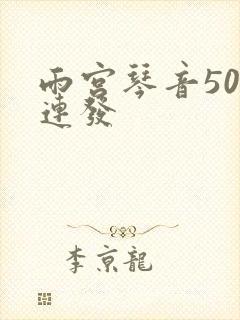 雨宮琴音50
連發
李京龍